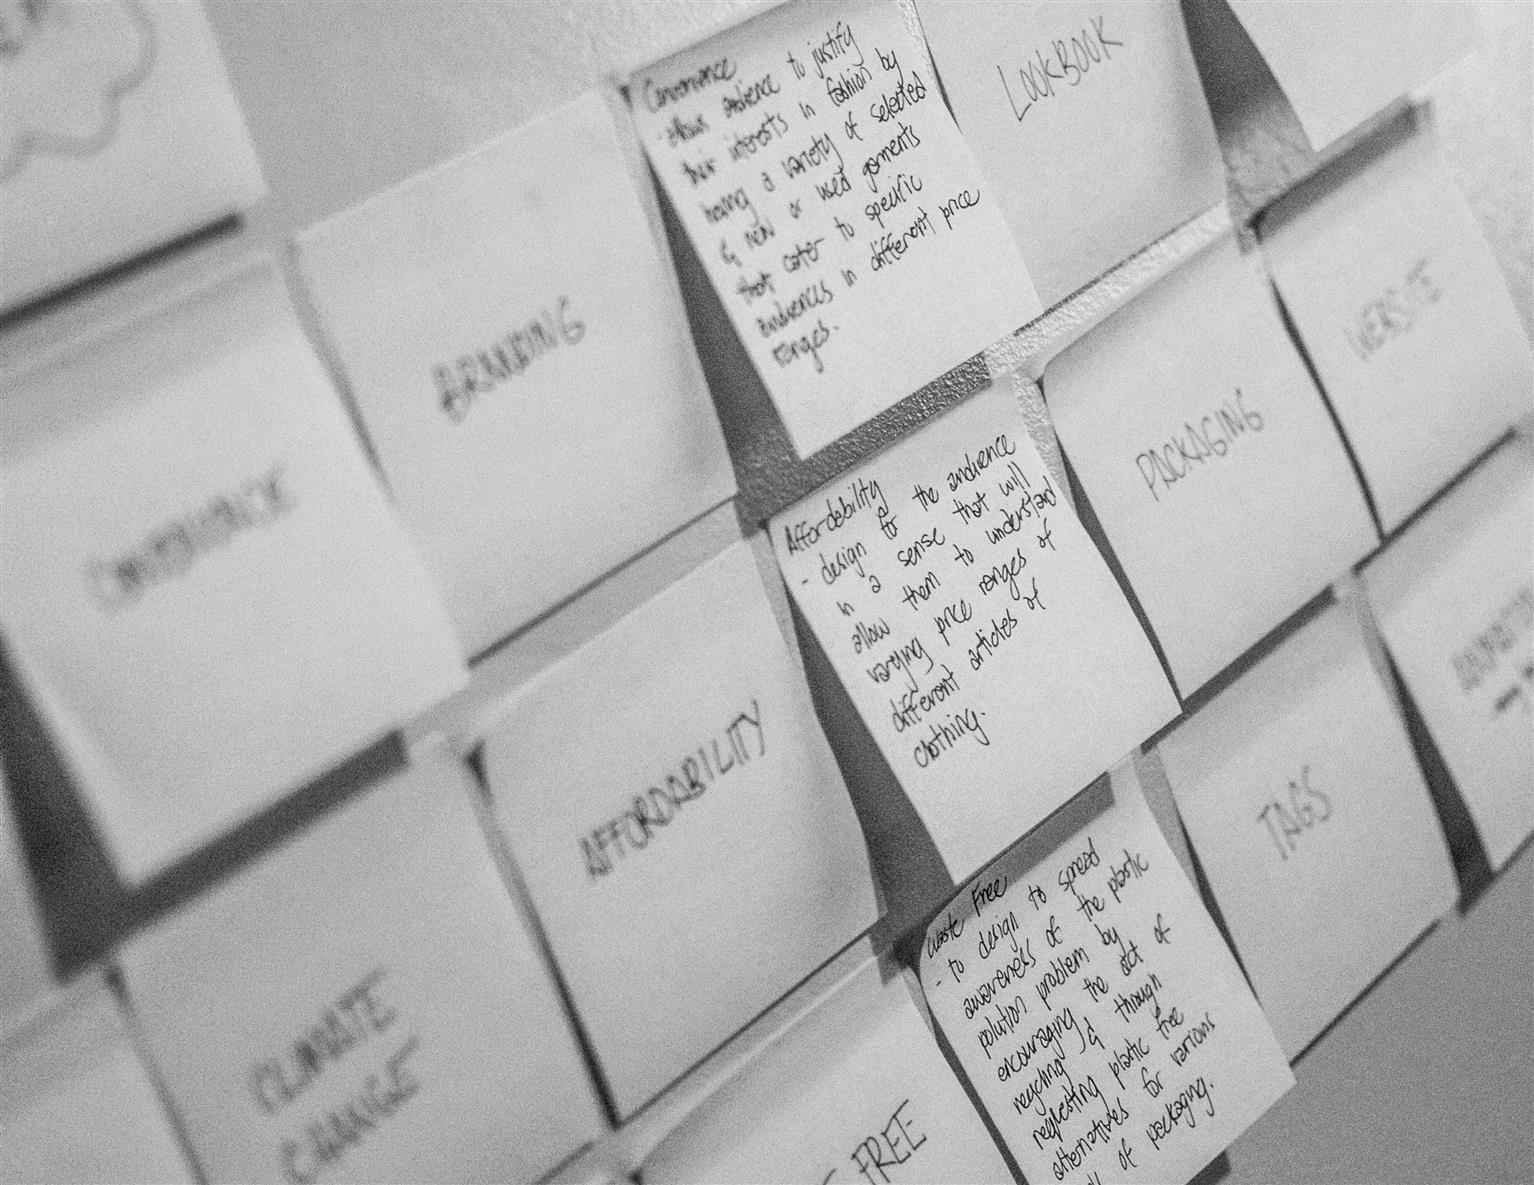 Convenience
- allows audience to justify
their interests in fashion by
having a variety of selected
& new or used garments
that cater to specific
audiences in different price
ranges.
LOOKBOOK
BRANDING
CONVENIENCE
Affordability
- design for the audience
in a sense that will
allow them to understand
varying price ranges of
different articles of
clothing.
PACKAGING
WEBSITE
AFFORDABILITY
TAGS
CLIMATE
CHANGE
Waste Free
- to design to spread
awareness of the plastic
polution problem by
encouraging the act of
recycling & through
requesting plastic free
alternatives for various
of packaging.
FREE